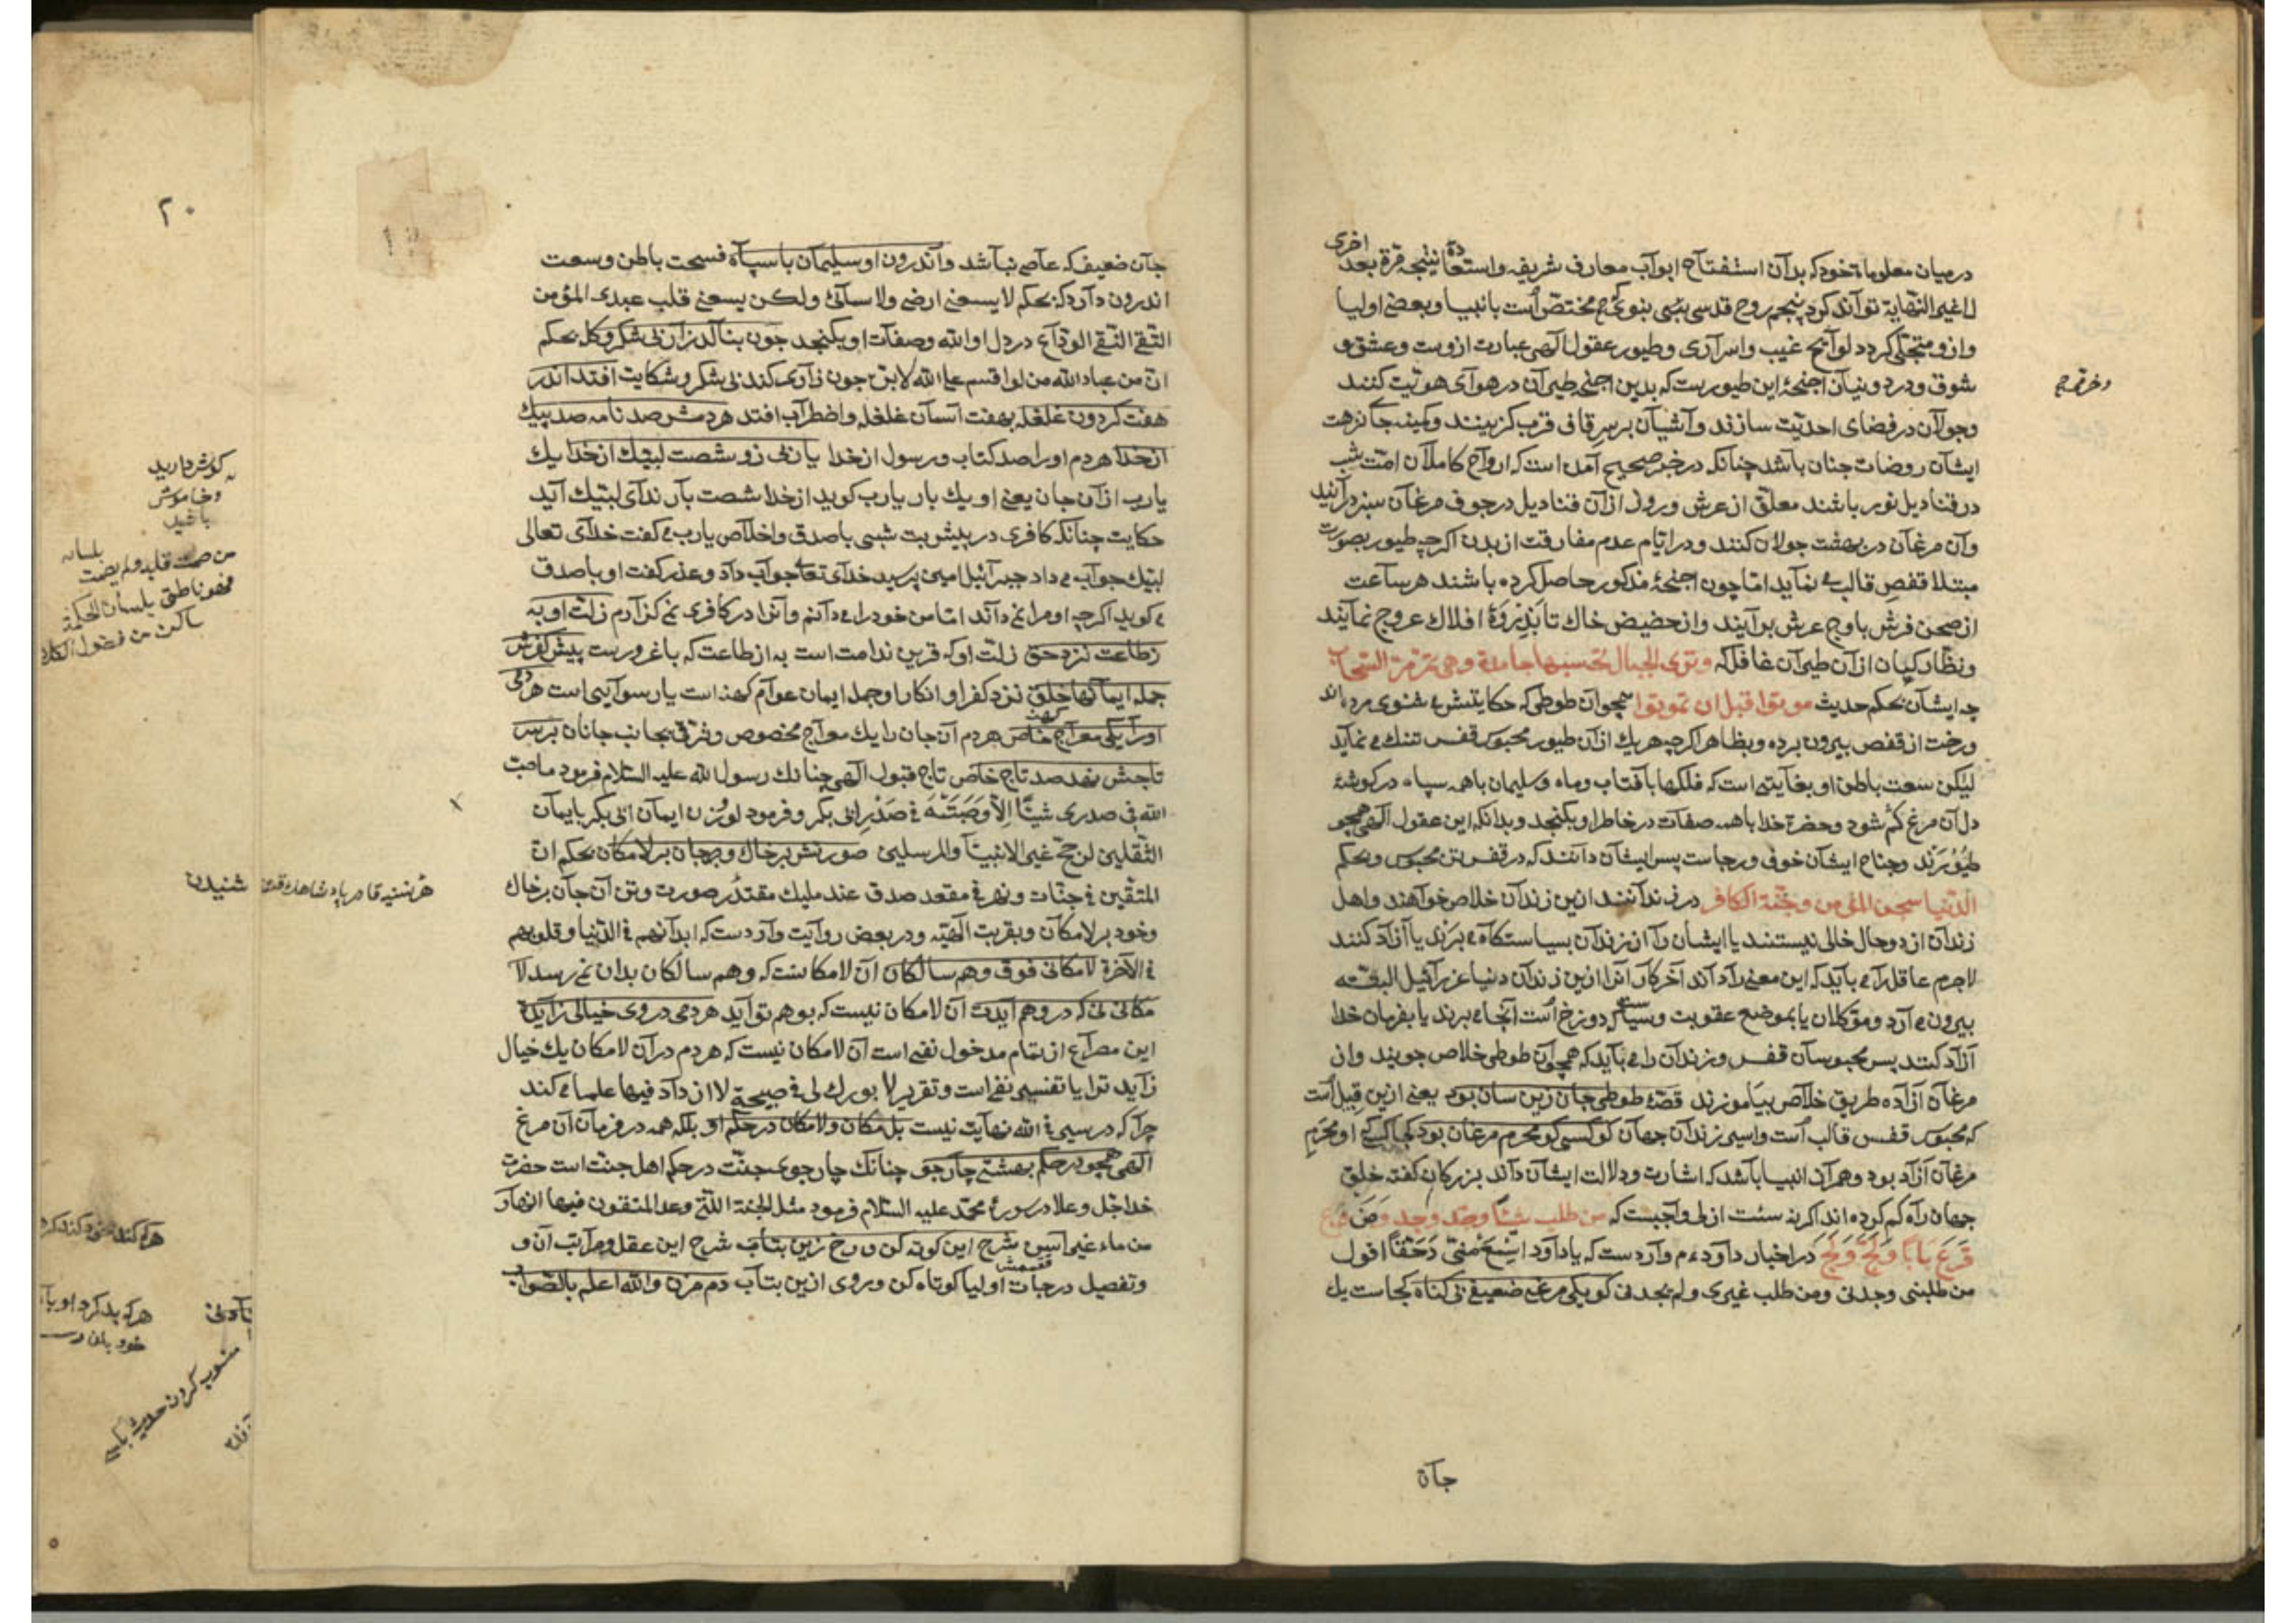 درمیان معلومات خود که بدان استفتاح ابواب معارف شریفه و استعادهٔ نتیجه مرة بعد اخری
لا غیر النهایة تواند کرد پنجم روح قدسی نبوی که مختص است بانبیا و بعضی اولیا
و ازو متجلی کردد لوائح غیب و اسراری و طیور عقول الهی عبارت ازوست و عشق و
شوق و درد و اجنحهٔ این طیورست که بدین اجنحه طیران در هوای هویت کنند
وجولان در فضای احدیت سازند و آشیان بر سر قاف قرب کزینند و کمینه جا نزهت
ایشان روضات جنان باشد چنانکه در خبر صحیح آمده است که ارواح کاملان امت شب
در قنادیل نور باشند معلق از عرش و روز از آن قنادیل در جوف مرغان سبز در آیند
وآن مرغان در بهشت جولان کنند و در ایام عدم مفارقت از بدن اکرچه طیور بصورت
مبتلا قفص قالب می نماید اما چون اجنحهٔ مذکور حاصل کرده باشند هر ساعت
از صحن فرش باوج عرش بر آیند و از حضیض خاک تا بذروهٔ افلاک عروج نمایند
ونظارکیان از آن طیران غافل که وتری الجبال تحسبها جامدة وهی تمر مر السحاب
چه ایشان بحکم حدیث موتوا قبل ان تموتوا همچو آن طوطی که حکایتش مثنوی مرده اند
ورخت از قفص بیرون برده و بظاهر اکرچه هر یک از آن طیور محبوس قفس تنک می نماید
لیکن سعت باطن او بغایتی است که فلکها با آفتاب و ماه و سلیمان با همه سپاه در کوشهٔ
دل آن مرغ کم شود وحضرت خدا با همه صفات در خاطر او بکنجد و بدانکه این عقول الهی همچو
طیورند وجناح ایشان خوف و رجاست پس ایشان دانند که در قفس تن محبوس و بحکم
الدنیا سجن المؤمن وجنة الکافر در زندانند از این زندان خلاص خواهند و اهل
زندان از دو حال خالی نیستند یا ایشان را از زندان بسیاستکاه می برند یا آزاد کنند
لاجرم عاقل را می باید که این معنی را داند آخر کار آنرا ازین زندان دنیا عزرائیل البته
بیرون می آرد و موکلان یا بموضع عقوبت و سیاست که دوزخ است آنجا می برند یا بفرمان خدا
آزاد کنند پس محبوسان قفس و زندان را می باید که همچو آن طوطی خلاص جویند و از
مرغان آزاده طریق خلاص بیاموزند قصهٔ طوطی جان زین سان بود یعنی ازین قبیل است
که محبوس قفس قالب است و اسیر زندان جهان کو کسی کو محرم مرغان بود کجا کسی که او محرم
مرغان آزاد بود و همرآن انبیا باشد که اشارت و دلالت ایشان داند بزرکان کفته خلق
جهان راه کم کرده اند اکرنه سنت ازلی واجبست که من طلب شیئا وجد وجد ومن قرع
قرع بابا ولج ولج در اخبار داودم وارد ست که یا داود اسمع منی حقا اقول
من طلبنی وجدنی ومن طلب غیری ولم یجدنی کو یکی مرغی ضعیفی بی کناه کجاست یک
جان
وخرة ج
جان ضعیف که عاصی نباشد واندرون او سلیمان با سپاه فسحت باطن وسعت
اندرون دارد که بحکم لا یسعنی ارضی ولا سمائی ولکن یسعنی قلب عبدی المؤمن
التقی النقی الوداع در دل او الله وصفات او بکنجد چون بنالد زار بی شکر وکله بحکم
ان من عباد الله من لو اقسم علی الله لابره چون زاری کند بی شکر و شکایت افتد اندر
هفت کردون غلغله بهفت آسمان غلغله واضطراب افتد هر دمش صد نامه صد پیک
از خدا هر دم او را صد کتاب ورسول از خدا یا ربی زو شصت لبیک از خدا یک
یارب از آن جان یعنی او یک بار یارب کوید از خدا شصت بار ندای لبیک آید
حکایت چنانکه کافری در پیش بت شبی با صدق واخلاص یارب می کفت خدای تعالی
لبیک جواب می داد جبرائیل امین پرسید خدای تعالی جواب داد و عذر کفت او با صدق
می کوید اکرچه او مرا نمی داند اما من خود را می دانم و آنرا در کافری نمی کزارم زلت او به
زطاعت نزد حق زلت او که قرین ندامت است به از طاعت که با غرورست پیش کفرش
جمله ایمانها خلق نزد کفر او انکار او جمله ایمان عوام کهنه است یا رسوایی است هر دمی
او را یکی معراج خاص هر دم آن جان را یک معراج مخصوص وترقی بجانب جانان بر سر
تاجش نهد صد تاج خاص تاج قبول الهی چنانک رسول الله علیه السلام فرمود ما صب
الله فی صدری شیئا الا وصببته فی صدر ابی بکر و فرمود لو وزن ایمان ابی بکر بایمان
الثقلین لرجح غیر الانبیا والمرسلین صورتش بر خاک و بر جان بر لامکان بحکم ان
المتقین فی جنات ونهر فی مقعد صدق عند ملیک مقتدر صورت وتن آن جان بر خاک
وخود بر لامکان وبقربت الهیه ودر بعض روایت وارد ست که ابدانهم فی الدنیا وقلوبهم
فی الآخرة لامکانی فوق وهم سالکان آن لامکانست که وهم سالکان بدان نمی رسد لا
مکانی نی که در وهم آیدت آن لامکان نیست که بوهم تو آید هر دمی در وی خیالی زایدت
این مصراع از تمام مدخول نفی است آن لامکان نیست که هر دم در آن لامکان یک خیال
زاید ترا یا تفسیر نفی است وتقریر لا بورک لی فی صبیحة لا ازداد فیها علما می کند
چرا که در سیر فی الله نهایت نیست بل مکان ولامکان در حکم او بلکه همه در فرمان آن مرغ
الهی همچو در حکم بهشتی چار جو چنانک چار جوی جنت در حکم اهل جنت است حضرت
خدا جل وعلا در سورهٔ محمد علیه السلام فرمود مثل الجنة التی وعد المتقون فیها انهار
من ماء غیر آسن شرح این کوته کن و رخ زین بتاب شرح این عقل و مراتب آن و
وتفصیل درجات اولیا کوتاه کن وروی ازین بتاب دم مزن والله اعلم بالصواب
شنیدن
۲۰
کوش دارید
وخاموش
باشید
من صمت قلبه ولم یصمت لسانه
فهو ناطق بلسان الحکمة
ساکن من فضول الکلام
هرکه بد کرد او با
منسوب کردن حدیث